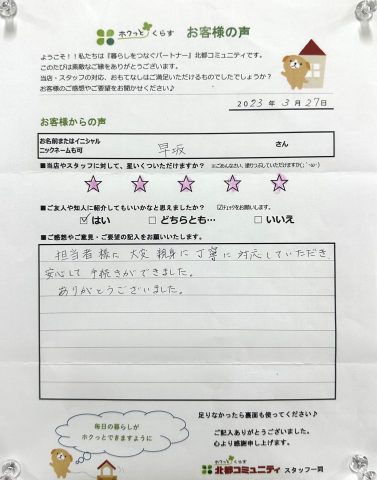 ホクっと くらす お客様の声
ようこそ!!私たちは『暮らしをつなぐパートナー』北都コミュニティです。
このたびは素敵なご縁をありがとうございます。
当店・スタッフの対応、おもてなしはご満足いただけるものでしたでしょうか?
お客様のご感想やご要望をお聞かせください♪
2023年 3月 27日
お客様からの声
お名前またはイニシャル
ニックネームも可
早坂
さん
■当店やスタッフに対して、星いくついただけますか?
■ご友人や知人に紹介してもいいかなと思えましたか? ☑チェックをお願いします。
☑はい □どちらとも… □いいえ
■ご感想やご意見・ご要望の記入をお願いいたします。
担当者様に 大変 親身に 丁寧に 対応していただき
安心して 手続きができました。
ありがとうございました。
足りなかったら裏面も使ってください♪
毎日の暮らしが
ホクっとできますように
ご記入ありがとうございました。
心より感謝申し上げます。
ホクっと くらす
北都コミュニティ スタッフ一同